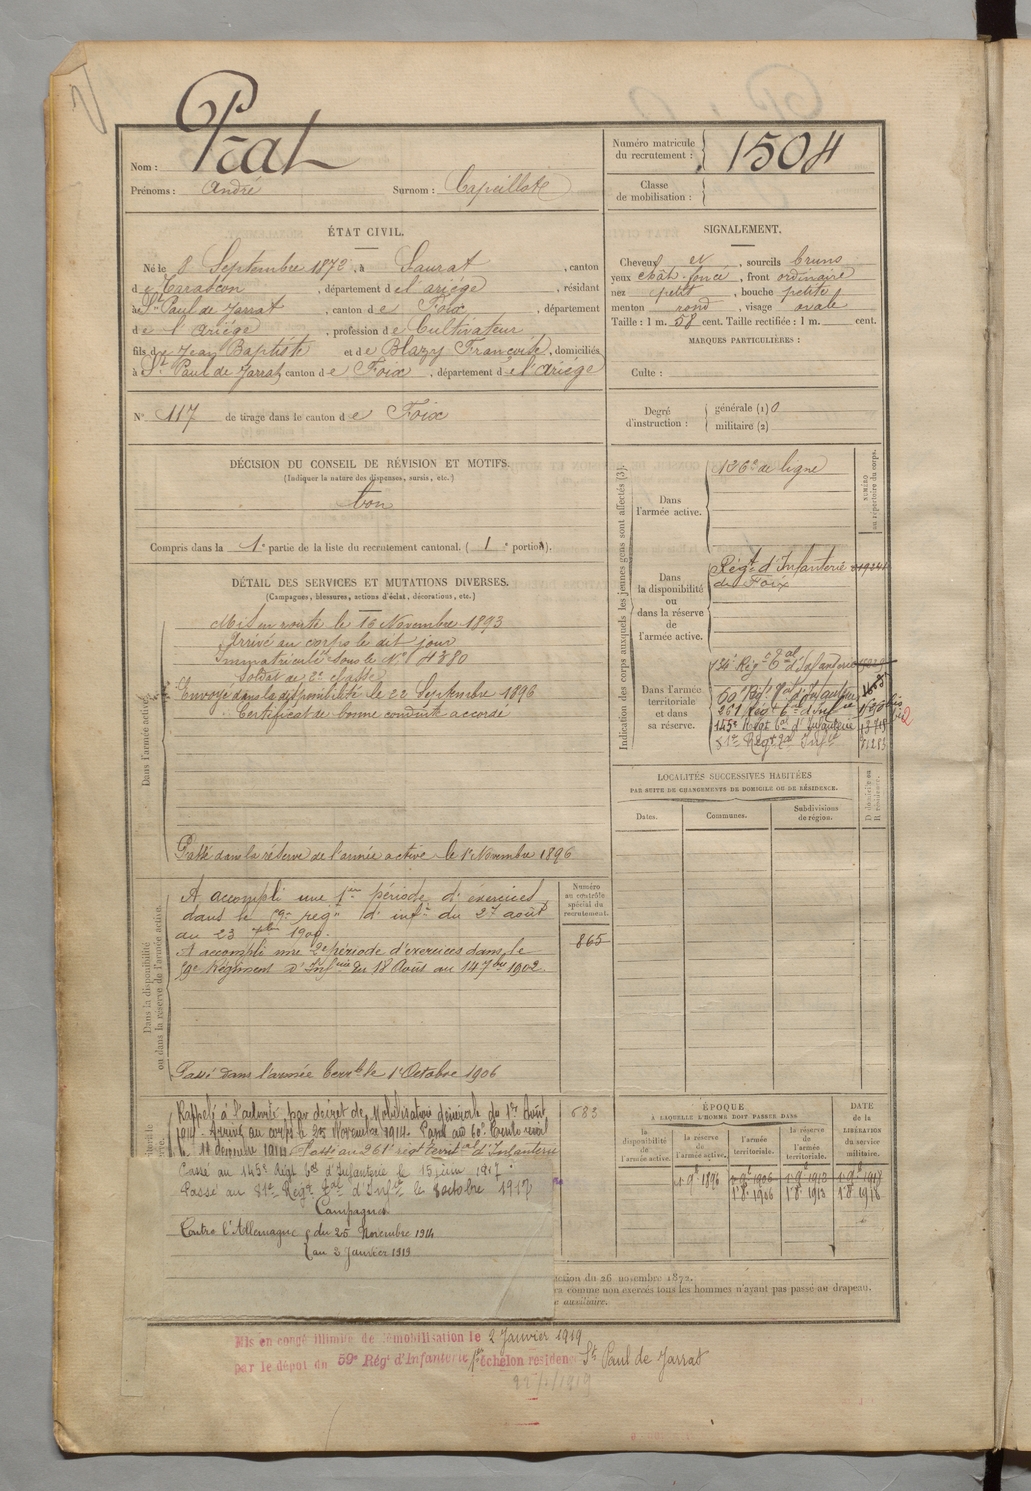 Nom : Prat
Prénoms : André Surnom : Capillote
Numéro matricule du recrutement : 1504
Classe de mobilisation :
ÉTAT CIVIL.
Né le 8 Septembre 1872, à Saurat, canton
de Tarascon, département de l'ariége, résidant
à St Paul de Jarrat, canton de Foix, département
de l'Ariége, profession de Cultivateur
fils de Jean Baptiste et de Blazy Francoise, domiciliés
à St Paul de Jarrat, canton de Foix, département de l'Ariége
N° 117 de tirage dans le canton de Foix
SIGNALEMENT.
Cheveux et, sourcils bruns
yeux chât. foncé, front ordinaire
nez petit, bouche petite
menton rond, visage ovale
Taille : 1 m. 58 cent. Taille rectifiée : 1 m. cent.
MARQUES PARTICULIÈRES :
Culte :
Degré d'instruction : générale (1) 0
militaire (2)
DÉCISION DU CONSEIL DE RÉVISION ET MOTIFS.
(Indiquer la nature des dispenses, sursis, etc.)
bon
Compris dans la 1e partie de la liste du recrutement cantonal. ( 1e portion).
DÉTAIL DES SERVICES ET MUTATIONS DIVERSES.
(Campagnes, blessures, actions d'éclat, décorations, etc.)
Dans l'armée active.
Mis en route le 16 Novembre 1893
Arrivé au corps le dit jour
Immatriculé sous le N° 4380
Soldat de 2e classe
Envoyé dans la disponibilité le 22 Septembre 1896
Certificat de bonne conduite accordé
Passé dans la réserve de l'armée active le 1er Novembre 1896
Dans la disponibilité ou dans la réserve de l'armée active.
A accompli une 1ère période d'exercices
dans le 59e regt d'infie du 27 août
au 23 7bre 1900.
A accompli une 2e période d'exercices dans le
59e Régiment d'Infie du 18 Août au 14 7bre 1902.
Passé dans l'armée terrle le 1er Octobre 1906
Numéro au contrôle spécial du recrutement.
865
683
Rappelé à l'activité par décret de Mobilisation générale du 1er Août
1914 - Arrivé au corps le 25 Novembre 1914. Passé au
11 décembre 1914 Passé au 261e régt territal d'Infanterie
Passé au 145e Régt tal d'Infanterie le 15 juin 1917
Passé au 81e Régt tal d'Infie le 8 octobre 1917
Campagnes
Contre l'Allemagne { du 25 Novembre 1914
{ au 3 Janvier 1919
Indication des corps auxquels les jeunes gens sont affectés (3).
NUMÉRO au répertoire du corps.
Dans l'armée active.
126e de ligne
Dans la disponibilité ou dans la réserve de l'armée active.
Régt d'Infanterie
de Foix
Dans l'armée territoriale et dans sa réserve.
134e Régt tal d'Infanterie
261 Régt tal d'Infie
145e Régt tal d'Infanterie
81e Régt tal Infie
LOCALITÉS SUCCESSIVES HABITÉES
PAR SUITE DE CHANGEMENTS DE DOMICILE OU DE RÉSIDENCE.
Dates. Communes. Subdivisions de région. D domicile ou R résidence.
ÉPOQUE
À LAQUELLE L'HOMME DOIT PASSER DANS
DATE de la LIBÉRATION DU SERVICE militaire.
la disponibilité de l'armée active. la réserve de l'armée active. l'armée territoriale. la réserve de l'armée territoriale.
1er 9bre 1896 1er 9bre 1906 1er 9bre 1912 1er 9bre 1918
1er 8bre 1906 1er 8bre 1913 1er 8bre 1918
du 26 novembre 1872.
comme non exercés tous les hommes n'ayant pas passé au drapeau.
auxiliaire.
Mis en congé illimité de démobilisation le 2 Janvier 1919
par le dépôt du 59e Régt d'Infanterie 1er échelon résidence St Paul de Jarrat